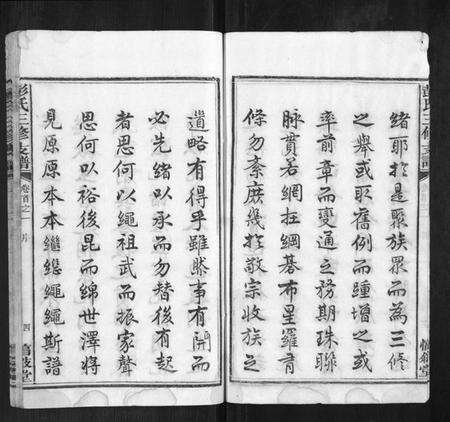 彭氏三修支譜
緒耶於是聚族眾而為三修
之舉或取舊例而踵增之或
率前章而變通之務期珠聯
脉貫若網在綱碁布星羅有
條勿紊庶幾於敬宗收族之
遺略有得乎雖然事有開而
必先緒以承而勿替後有起
者思何以繩祖武而振家聲
思何以裕後昆而綿世澤將
見原原本本繼繼繩繩斯譜
彭氏三修支譜
卷首之一
四